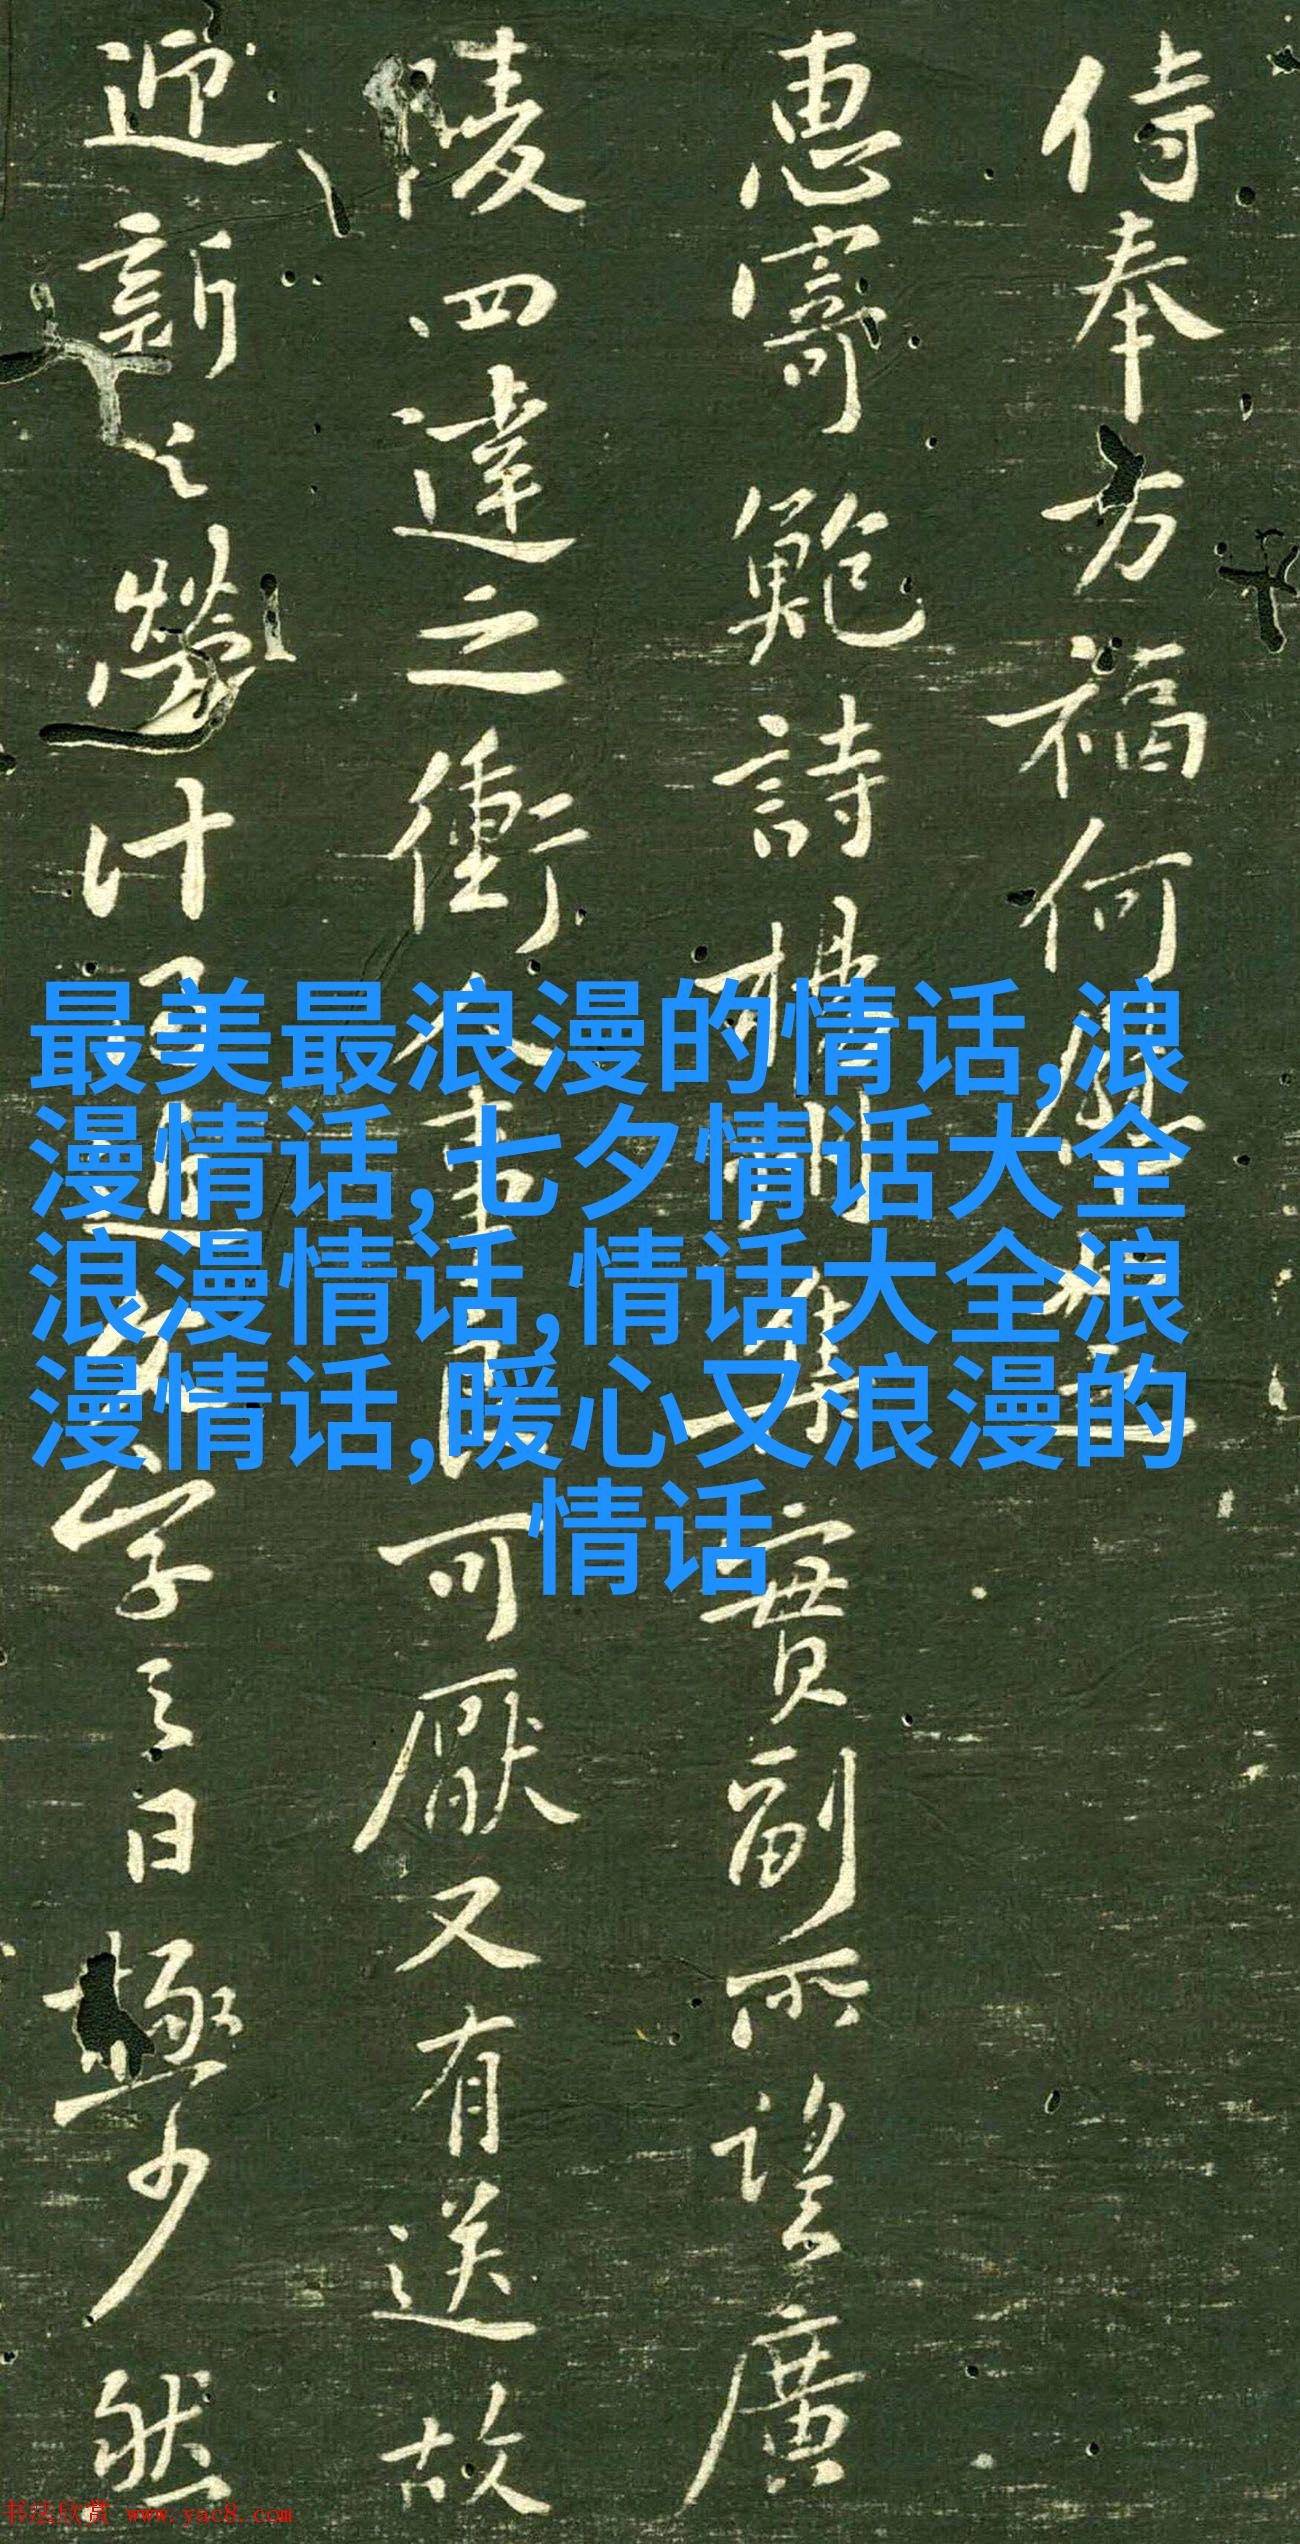 侍奉万福何
惠寄鲍詩
實副所望廣
陵四達之衝
可厭又有送故
迎新之勞計
字言日極少然
最美最浪漫的情话,浪
漫情话,七夕情话大全
浪漫情话,情话大全浪
漫情话,暖心又浪漫的
情话
书法欣赏 www.yac8.com